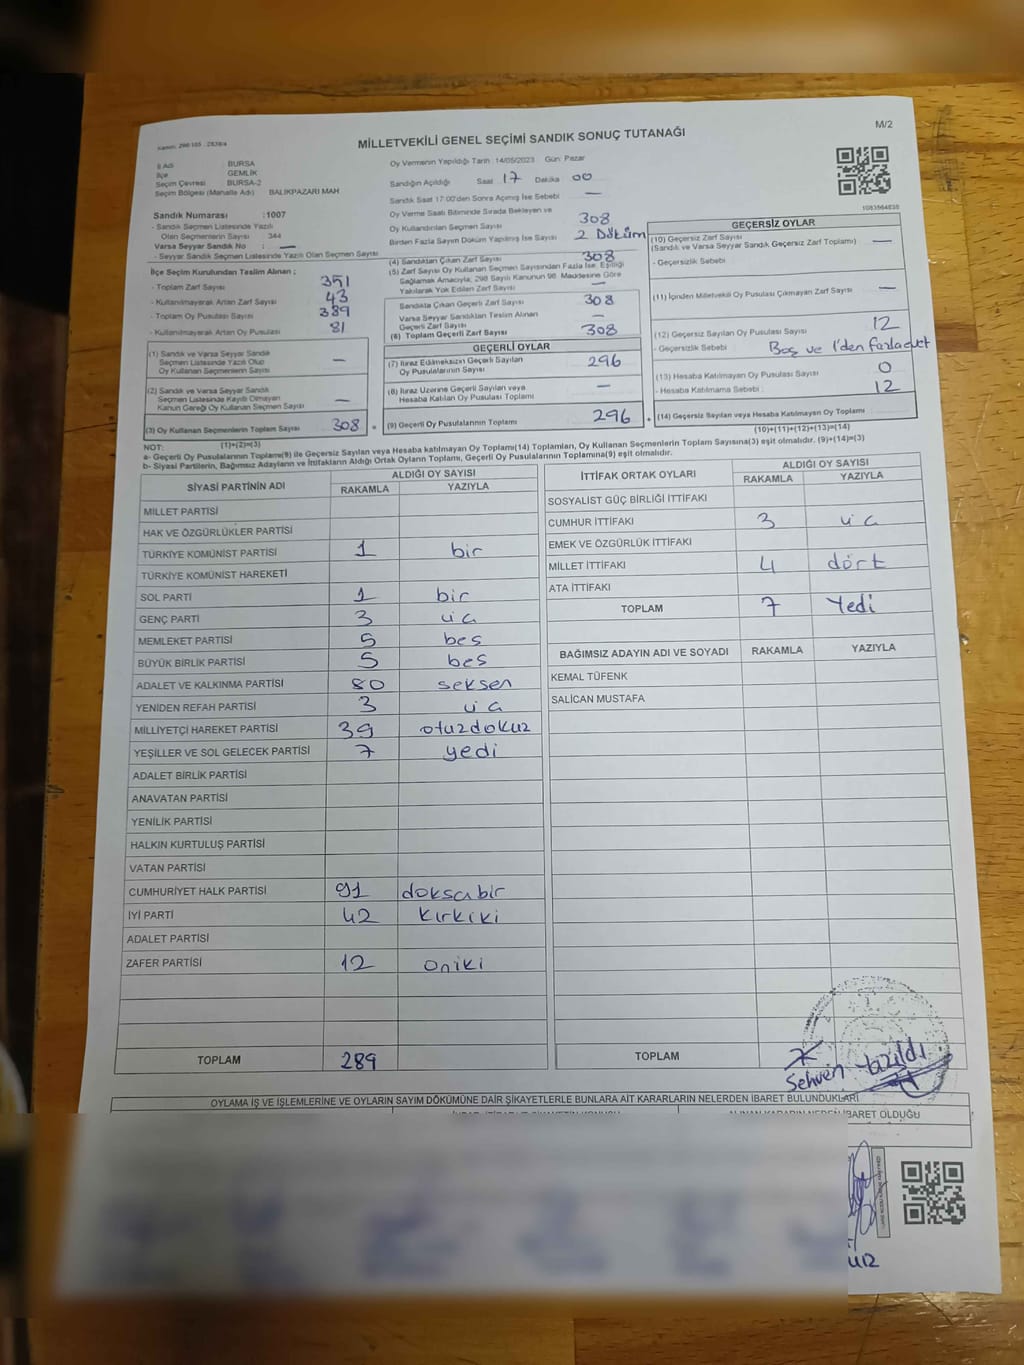 M/2
MİLLETVEKİLİ GENEL SEÇİMİ SANDIK SONUÇ TUTANAĞI
İl Adı : BURSA
İlçe : GEMLİK
Seçim Çevresi : BURSA-2
Seçim Bölgesi (Mahalle Adı) : BALIKPAZARI MAH
Sandık Numarası : 1007
- Sandık Seçmen Listesinde Yazılı
Olan Seçmenlerin Sayısı : 344
Varsa Seyyar Sandık No : —
- Seyyar Sandık Seçmen Listesinde Yazılı Olan Seçmen Sayısı
İlçe Seçim Kurulundan Teslim Alınan ;
- Toplam Zarf Sayısı 351
- Kullanılmayarak Artan Zarf Sayısı 43
- Toplam Oy Pusulası Sayısı 389
- Kullanılmayarak Artan Oy Pusulası 81
(1) Sandık ve Varsa Seyyar Sandık
Seçmen Listesinde Yazılı Olup
Oy Kullanan Seçmenlerin Sayısı —
(2) Sandık ve Varsa Seyyar Sandık
Seçmen Listesinde Kayıtlı Olmayan
Kanun Gereği Oy Kullanan Seçmen Sayısı —
(3) Oy Kullanan Seçmenlerin Toplam Sayısı 308
(1)+(2)=(3)
Oy Vermenin Yapıldığı Tarih : 14/05/2023 Gün: Pazar
Sandığın Açıldığı Saat 17 Dakika 00
Sandık Saat 17:00'den Sonra Açılmış İse Sebebi —
Oy Verme Saati Bitiminde Sırada Bekleyen ve
Oy Kullandırılan Seçmen Sayısı 308
Birden Fazla Sayım Döküm Yapılmış İse Sayısı 2 Döküm
(4) Sandıktan Çıkan Zarf Sayısı 308
(5) Zarf Sayısı Oy Kullanan Seçmen Sayısından Fazla İse, Eşitliği
Sağlamak Amacıyla; 298 Sayılı Kanunun 98. Maddesine Göre
Yakılarak Yok Edilen Zarf Sayısı —
Sandıkta Çıkan Geçerli Zarf Sayısı 308
Varsa Seyyar Sandıktan Teslim Alınan
Geçerli Zarf Sayısı —
(6) Toplam Geçerli Zarf Sayısı 308
GEÇERLİ OYLAR
(7) İtiraz Edilmeksizin Geçerli Sayılan
Oy Pusulalarının Sayısı 296
(8) İtiraz Üzerine Geçerli Sayılan veya
Hesaba Katılan Oy Pusulası Toplamı —
(9) Geçerli Oy Pusulalarının Toplamı 296
1083564835
GEÇERSİZ OYLAR
(10) Geçersiz Zarf Sayısı
(Sandık ve Varsa Seyyar Sandık Geçersiz Zarf Toplamı) —
- Geçersizlik Sebebi
(11) İçinden Milletvekili Oy Pusulası Çıkmayan Zarf Sayısı —
(12) Geçersiz Sayılan Oy Pusulası Sayısı 12
- Geçersizlik Sebebi Boş ve 1'den fazla evet
(13) Hesaba Katılmayan Oy Pusulası Sayısı 0
- Hesaba Katılmama Sebebi : 12
(14) Geçersiz Sayılan veya Hesaba Katılmayan Oy Toplamı
(10)+(11)+(12)+(13)=(14)
NOT:
a- Geçerli Oy Pusulalarının Toplamı(9) ile Geçersiz Sayılan veya Hesaba katılmayan Oy Toplamı(14) Toplamları, Oy Kullanan Seçmenlerin Toplam Sayısına(3) eşit olmalıdır. (9)+(14)=(3)
b- Siyasi Partilerin, Bağımsız Adayların ve İttifakların Aldığı Ortak Oyların Toplamı, Geçerli Oy Pusulalarının Toplamına(9) eşit olmalıdır.
SİYASİ PARTİNİN ADI
ALDIĞI OY SAYISI
RAKAMLA YAZIYLA
MİLLET PARTİSİ
HAK VE ÖZGÜRLÜKLER PARTİSİ
TÜRKİYE KOMÜNİST PARTİSİ 1 bir
TÜRKİYE KOMÜNİST HAREKETİ
SOL PARTİ 1 bir
GENÇ PARTİ 3 üç
MEMLEKET PARTİSİ 5 beş
BÜYÜK BİRLİK PARTİSİ 5 beş
ADALET VE KALKINMA PARTİSİ 80 seksen
YENİDEN REFAH PARTİSİ 3 üç
MİLLİYETÇİ HAREKET PARTİSİ 39 otuzdokuz
YEŞİLLER VE SOL GELECEK PARTİSİ 7 yedi
ADALET BİRLİK PARTİSİ
ANAVATAN PARTİSİ
YENİLİK PARTİSİ
HALKIN KURTULUŞ PARTİSİ
VATAN PARTİSİ
CUMHURİYET HALK PARTİSİ 91 doksabir
İYİ PARTİ 42 kırkiki
ADALET PARTİSİ
ZAFER PARTİSİ 12 oniki
TOPLAM 289
İTTİFAK ORTAK OYLARI
ALDIĞI OY SAYISI
RAKAMLA YAZIYLA
SOSYALİST GÜÇ BİRLİĞİ İTTİFAKI
CUMHUR İTTİFAKI 3 üç
EMEK VE ÖZGÜRLÜK İTTİFAKI
MİLLET İTTİFAKI 4 dört
ATA İTTİFAKI
TOPLAM 7 Yedi
BAĞIMSIZ ADAYIN ADI VE SOYADI RAKAMLA YAZIYLA
KEMAL TÜFENK
SALİCAN MUSTAFA
TOPLAM 7
Sehven yazıldı
OYLAMA İŞ VE İŞLEMLERİNE VE OYLARIN SAYIM DÖKÜMÜNE DAİR ŞİKAYETLERLE BUNLARA AİT KARARLARIN NELERDEN İBARET BULUNDUKLARI